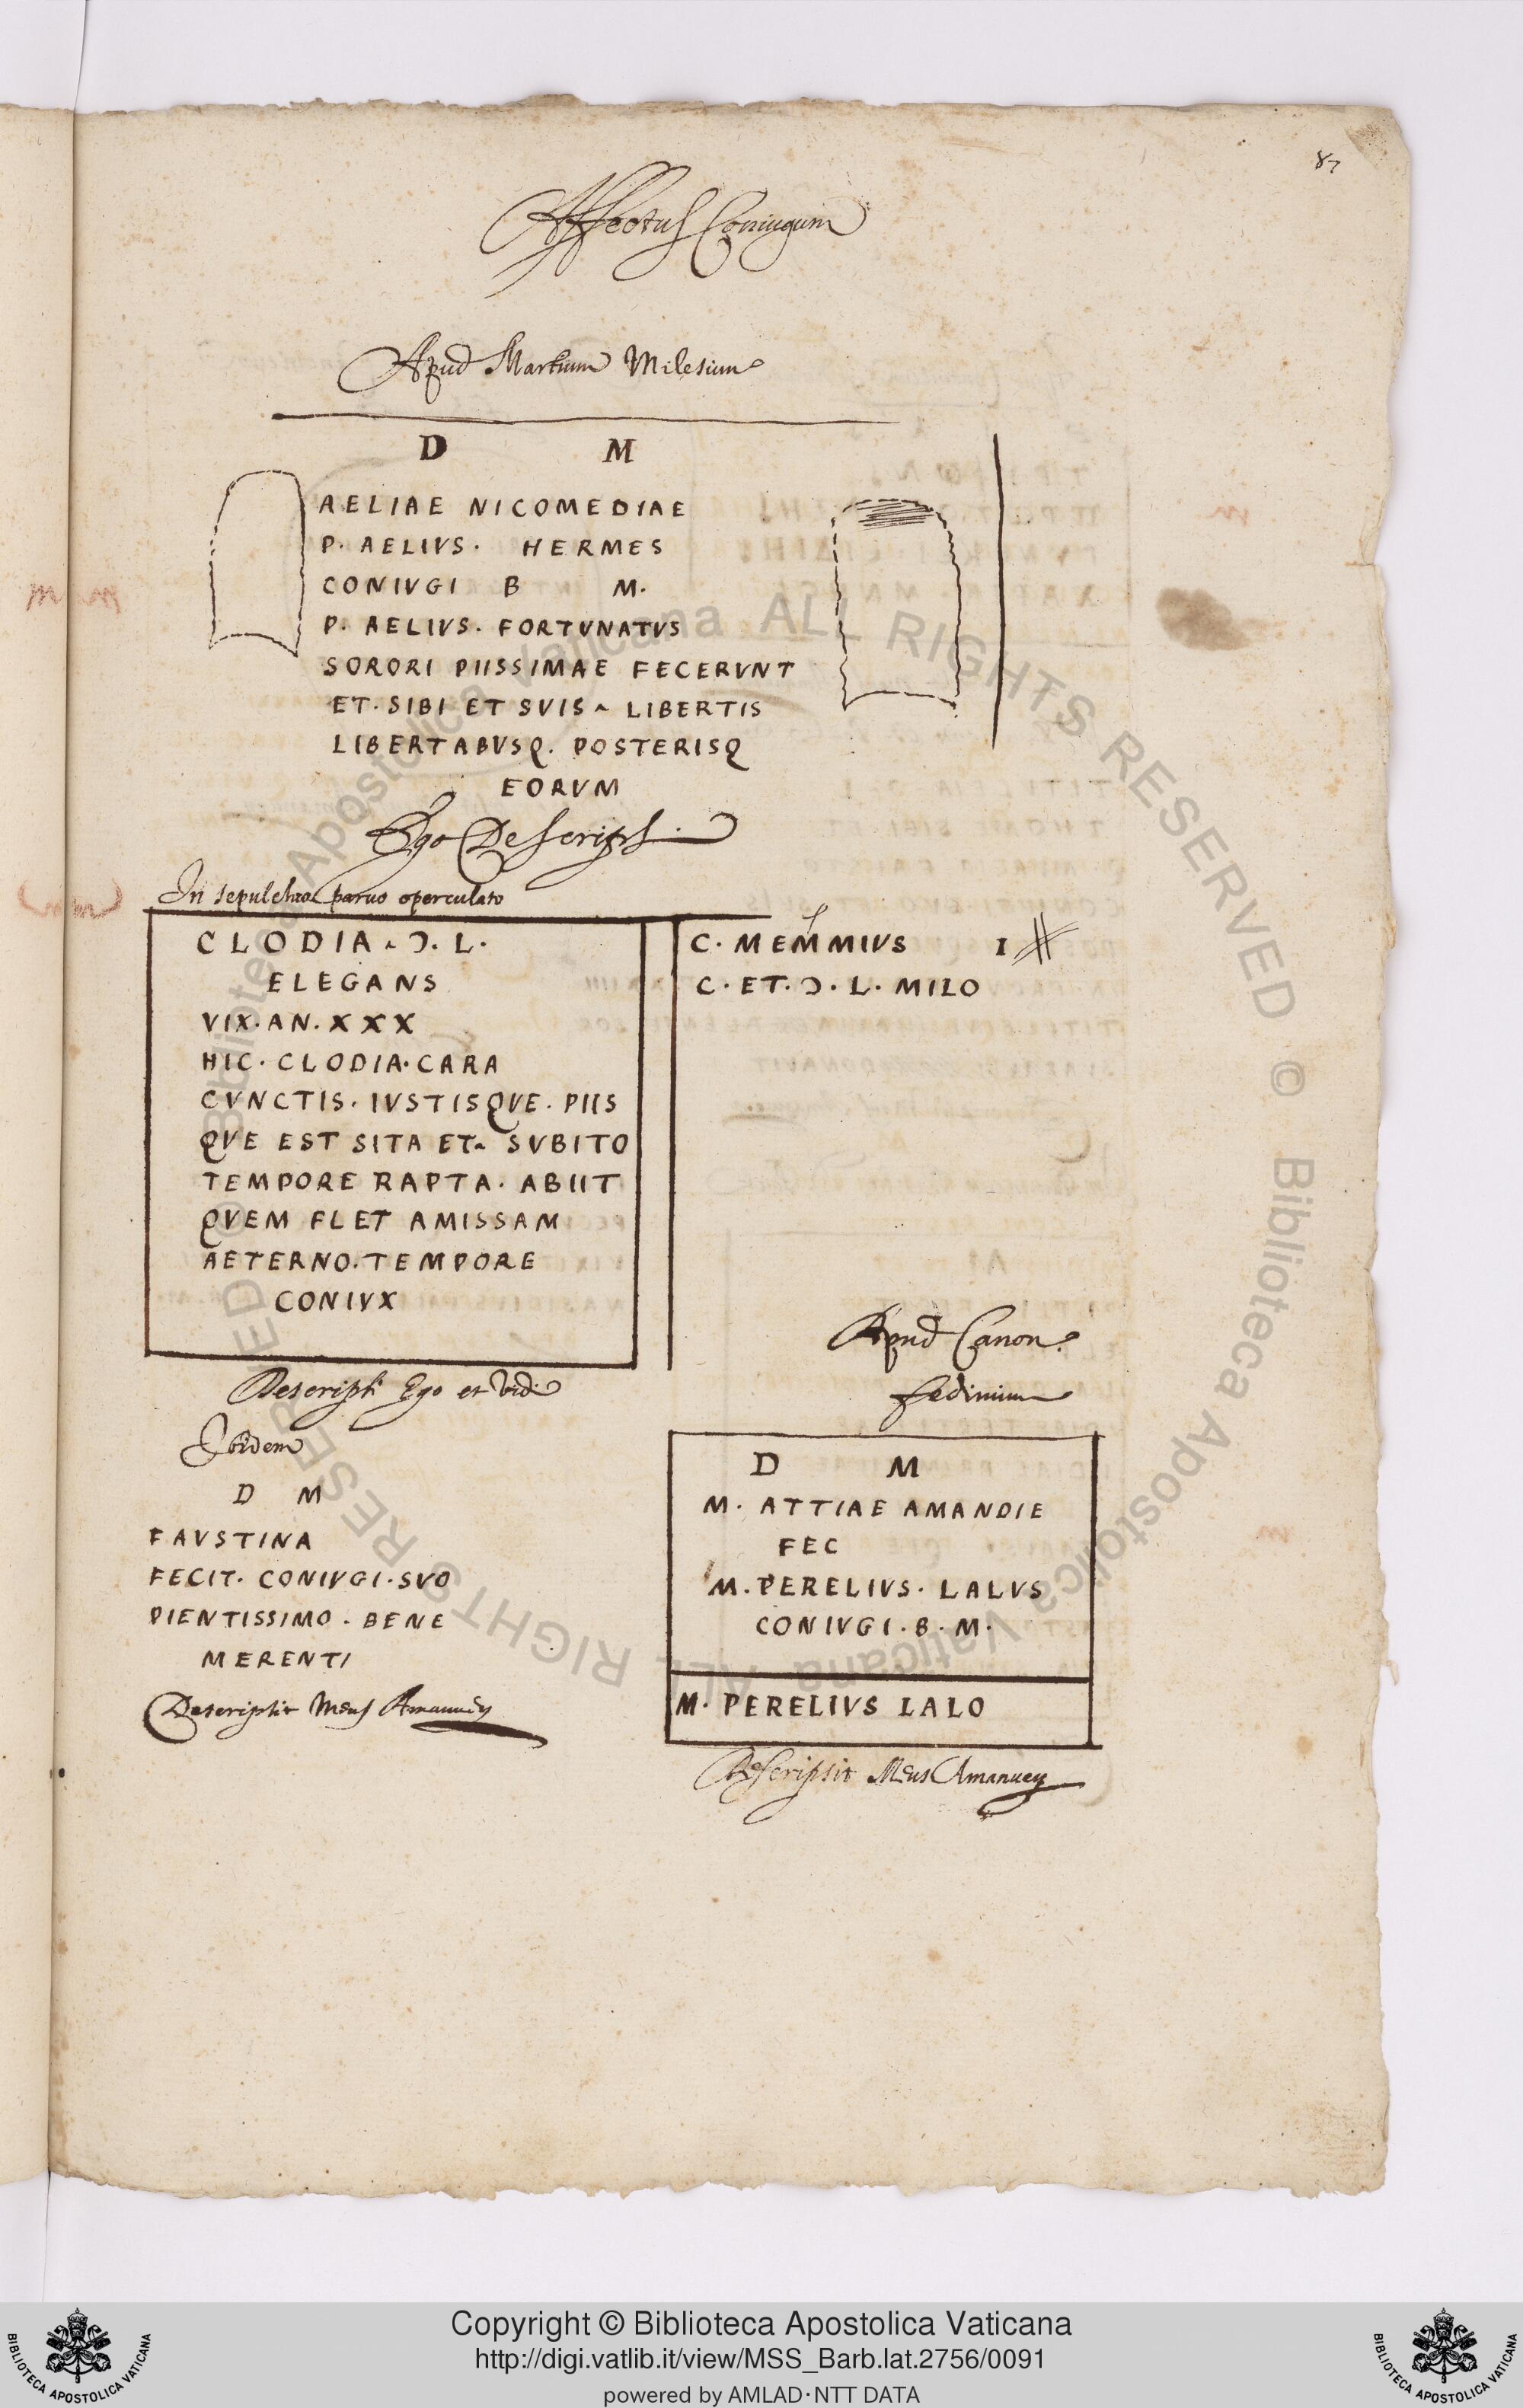 87
Affectus Coniugum
Apud Martium Milesium
D M
AELIAE NICOMEDIAE
P. AELIVS. HERMES
CONIVGI B M.
P. AELIVS. FORTVNATVS
SORORI PIISSIMAE FECERVNT
ET. SIBI ET SVIS ~ LIBERTIS
LIBERTABVSQ. POSTERISQ
EORVM
Ego Descripsi.
In sepulchro paruo operculato
CLODIA ~ Ɔ. L.
ELEGANS
VIX. AN. XXX
HIC. CLODIA. CARA
CVNCTIS. IVSTISQVE. PIIS
QVE EST SITA ET~ SVBITO
TEMPORE RAPTA. ABIIT
QVEM FLET AMISSAM
AETERNO. TEMPORE
CONIVX
Descripsi Ego et vidi
C. MEMMIVS I
C. ET. Ɔ. L. MILO
Ibidem
D M
FAVSTINA
FECIT. CONIVGI. SVO
PIENTISSIMO. BENE
MERENTI
Descripsit Meus Amanuens
Apud Canon.
D M
M. ATTIAE AMANDIE
FEC
M. PERELIVS. LALVS
CONIVGI. B. M.
M. PERELIVS LALO
Descripsit Meus Amanuens
© Biblioteca Apostolica Vaticana ALL RIGHTS RESERVED © Biblioteca Apostolica Vaticana ALL RIGHTS RESERVED
BIBLIOTECA APOSTOLICA VATICANA
Copyright © Biblioteca Apostolica Vaticana
http://digi.vatlib.it/view/MSS_Barb.lat.2756/0091
powered by AMLAD·NTT DATA
BIBLIOTECA APOSTOLICA VATICANA